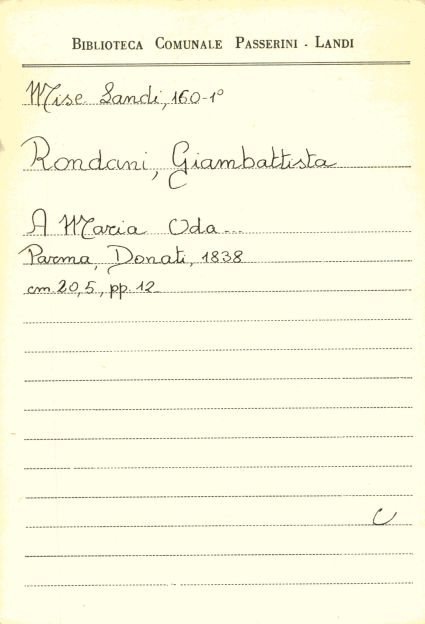 BIBLIOTECA COMUNALE PASSERINI - LANDI
Misc. Landi, 160-1°
Rondani, Giambattista
A Maria Oda...
Parma, Donati, 1838
cm 20,5, pp. 12
C